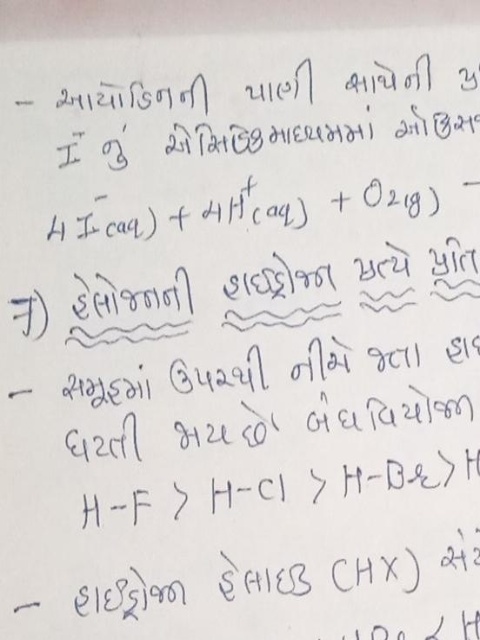 - આયોડિનની પાણી સાથેની
I⁻ નું એસિડિક માધ્યમમાં
4I⁻(aq) + 4H⁺(aq) + O2(g)
ન) હેલોજનની હાઈડ્રોજન પ્રત્યે પ્રતિ
- સમૂહમાં ઉપરથી નીચે જતા હાઇ
ઘટતી જાય છે બંધ વિયોજન
H-F > H-Cl > H-Br > H
- હાઈડ્રોજન હેલાઇડ (HX)